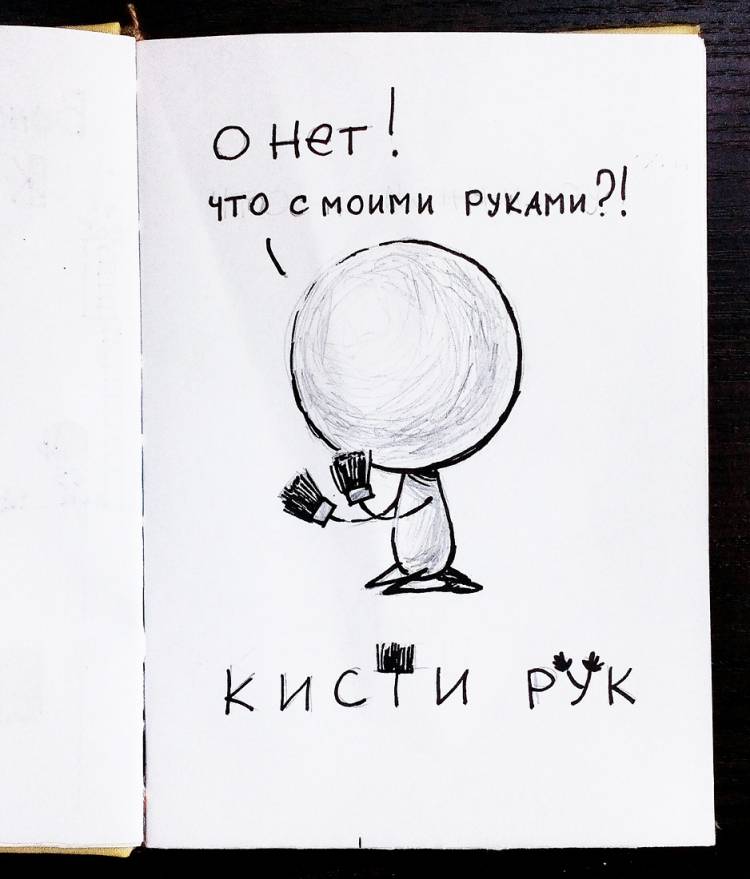 О НЕТ!
ЧТО С МОИМИ РУКАМИ?!
КИСТИ РУК